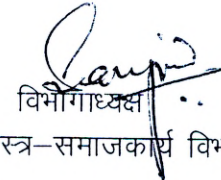 विभागाध्यक्ष
स्त्र–समाजकार्य वि